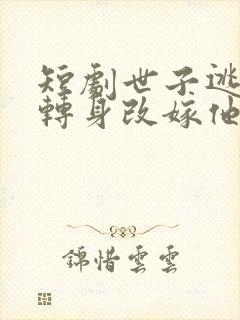 短劇世子逃
轉身改嫁他
錦惜雲雲